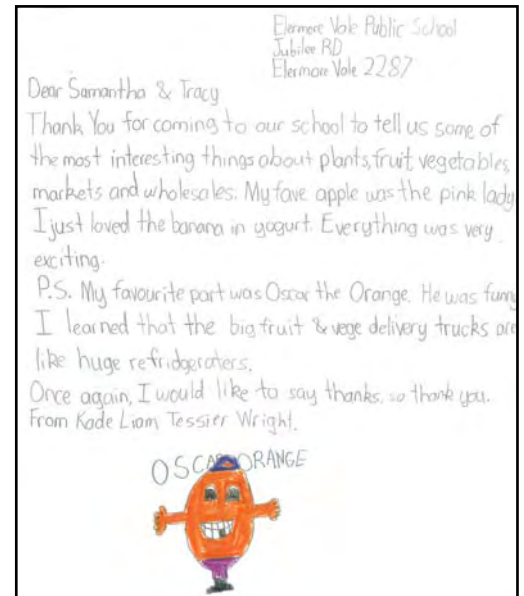 Elermore Vale Public School
Jubilee RD
Elermore Vale 2287
Dear Samantha & Tracy
Thank You for coming to our school to tell us some of
the most interesting things about plants, fruit vegetables,
markets and wholesales. My fave apple was the pink lady
I just loved the banana in yogurt. Everything was very
exciting.
P.S. My favourite part was Oscar the Orange. He was funny
I learned that the big fruit & vege delivery trucks are
like huge refridgeraters.
Once again, I would like to say thanks, so thank you.
From Kade Liam Tessier Wright.
OSCAR ORANGE